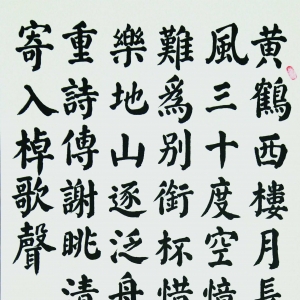 黃鶴西樓月長
風三十度空憶
難爲別銜杯惜
樂地山逐泛舟
重詩傳謝眺清
寄入棹歌聲